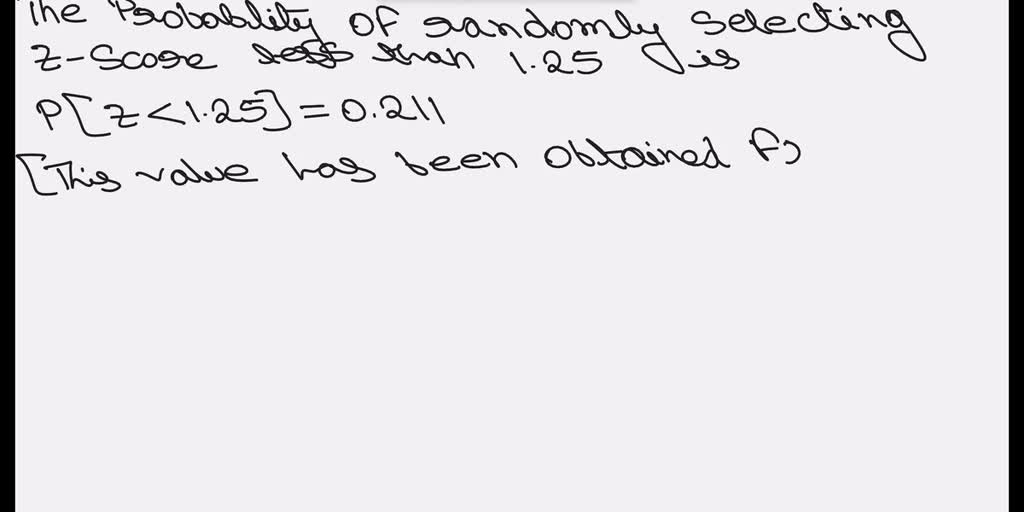 The Probability of randomly selecting
z-Score less than 1.25 is
P[z<1.25] = 0.211
[This value has been obtained f